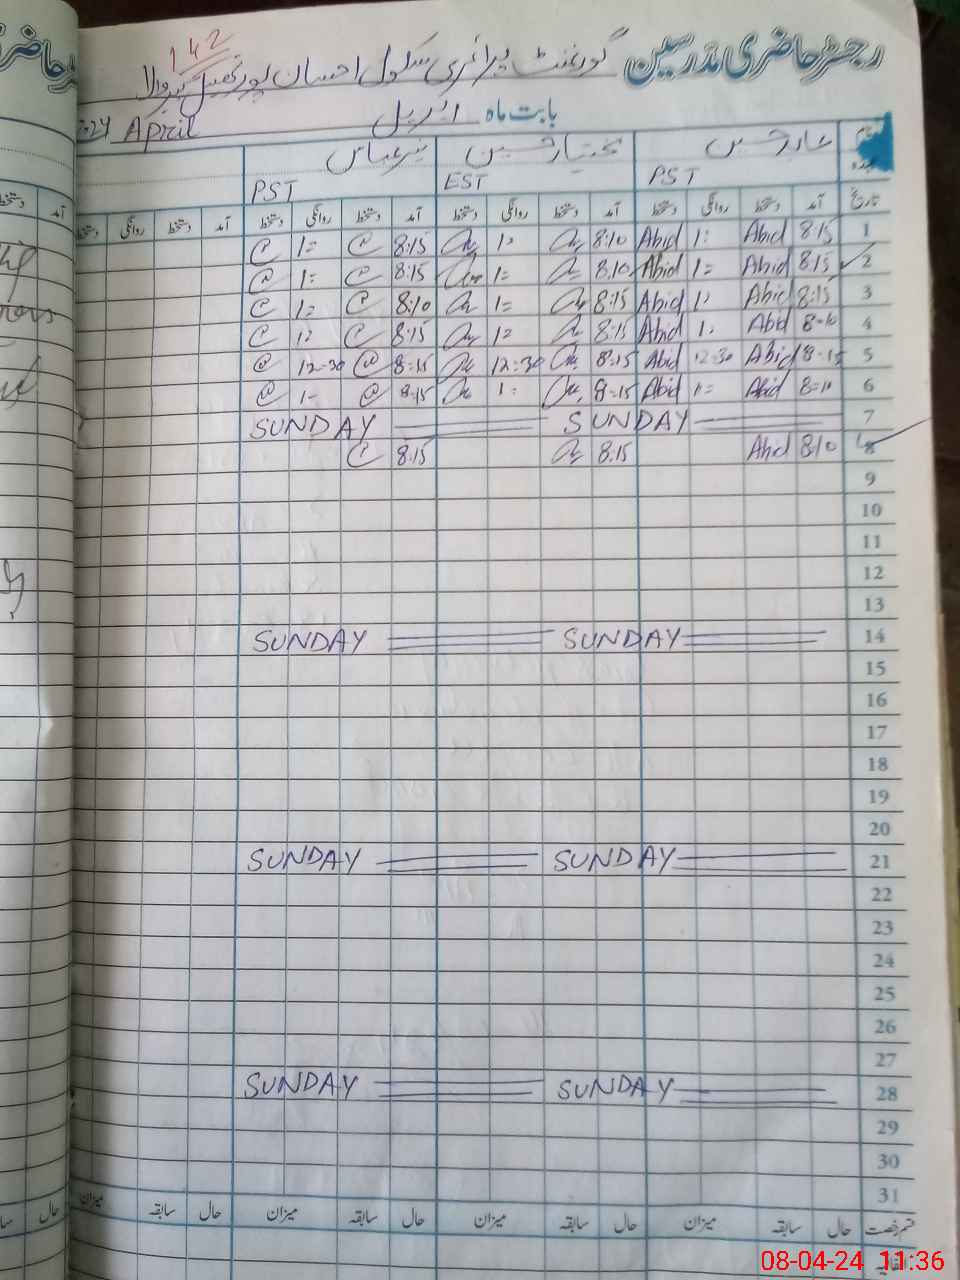 رجسٹر حاضری مدرسین گورنمنٹ پرائمری سکول احسان پور تحصیل
142
بابت ماہ اپریل April
عابد حسین بختیار حسین
PST EST PST
تاریخ آمد دستخط روانگی دستخط آمد دستخط روانگی دستخط آمد دستخط روانگی دستخط آمد دستخط روانگی دستخط
1 8:15 Abid 1: Abid 8:10 1: 8:15 1=
2 8:15 Abid 1= Abid 8:10 1= 8:15 1=
3 8:15 Abid 1: Abid 8:15 1= 8:10 1=
4 8=10 Abid 1: Abid 8:15 1= 8:15 1:
5 8=15 Abid 12=30 Abid 8:15 12=30 8=15 12=30
6 8=10 Abid 1= Abid 8=15 1: 8:15 1-
7 SUNDAY SUNDAY
8 8:10 Abid 8:15 8:15
9
10
11
12
13
14 SUNDAY SUNDAY
15
16
17
18
19
20
21 SUNDAY SUNDAY
22
23
24
25
26
27
28 SUNDAY SUNDAY
29
30
31
قسم رخصت حال سابقہ میزان حال سابقہ میزان حال سابقہ میزان حال سابقہ میزان
08-04-24 11:36